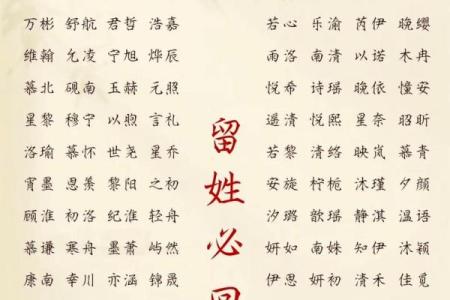 万彬 舒航 君哲 浩嘉
维翰 允凌 宁旭 烨辰
慕北 砚南 玉赫 元照
星黎 穆宁 以煦 言礼
洛瑜 慕怀 世尧 星乔
宵墨 思羡 黎阳 之初
顾淮 初洛 纪淮 轻舟
慕谦 寒舟 墨萧 屿然
康南 幸川 亦涵 锦晟
留姓必回
若心 乐渝 芮伊 晚缨
雨洛 南清 以诺 木冉
悦希 诗瑶 晚依 憧安
遥清 悦熙 星奈 昭昕
若黎 清绻 映岚 慕青
安旋 柠栀 沐瑾 夕颜
汐璐 歆瑶 静淇 温语
妍如 南姝 知伊 沐颖
伊思 妍初 清禾 佳觅